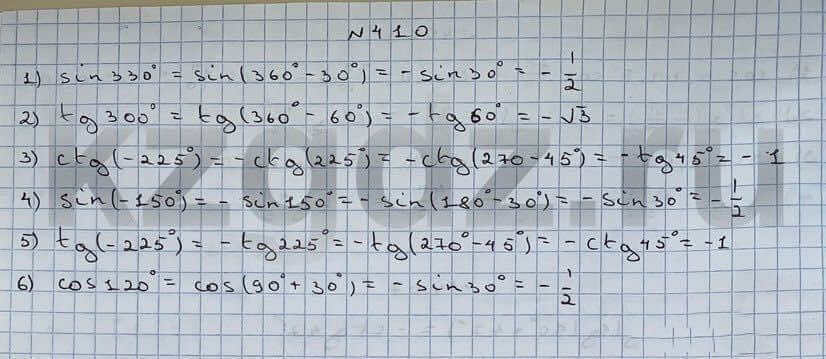 N410
1) sin 330° = sin(360° - 30°) = - sin 30° = - 1/2
2) tg 300° = tg(360° - 60°) = - tg 60° = - √3
3) ctg(-225°) = - ctg(225°) = - ctg(270 - 45°) = - tg 45° = - 1
4) sin(-150°) = - sin 150° = - sin(180° - 30°) = - sin 30° = - 1/2
5) tg(-225°) = - tg 225° = - tg(270° - 45°) = - ctg 45° = -1
6) cos 120° = cos(90° + 30°) = - sin 30° = - 1/2
kzgdz.ru